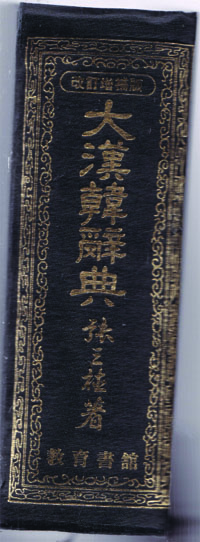 改訂增補版
大漢韓辭典
張三植著
敎育書館